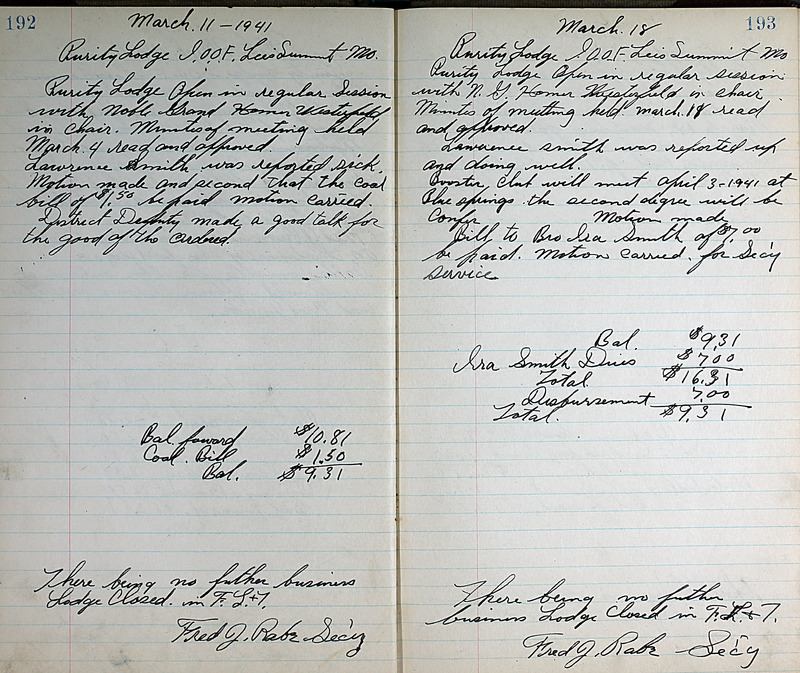 192
March. 11 - 1941
Purity Lodge I.O.O.F. Leis Summit Mo.
Purity Lodge Open in regular Session
with Noble Grand Homer Westerfield
in Chair. Minutes of meeting held
March 4 read and approved.
Lawrence Smith was reported sick.
Motion made and second that the coal
bill of $1.50 be paid motion carried.
District Deputy made a good talk for
the good of the Ordered.
Bal. foward $10.81
Coal. Bill $1.50
Bal. $9.31
There being no futher business
Lodge Closed. in F. L. + T.
Fred J. Rabe Sec'y
193
March. 18
Purity Lodge I.O.O.F. Leis Summit Mo
Purity Lodge Open in regular session
with N.G. Homer Westerfield in chair.
Minutes of meetting held. march. 18 read
and approved.
Lawrence smith was reported up
and doing well.
Booster, Club will meet april 3-1941 at
Blue springs the second degree will be
Confer Motion made
Bill to Bro Ira Smith of $7.00
be paid. Motion carried. for Sec'y
service
Bal. $9.31
Ira Smith Dues $7.00
Total. $16.31
Disbursement 7.00
Total. $9.31
There being no futher
business Lodge Closed in F. L. + T.
Fred J. Rabe Sec'y